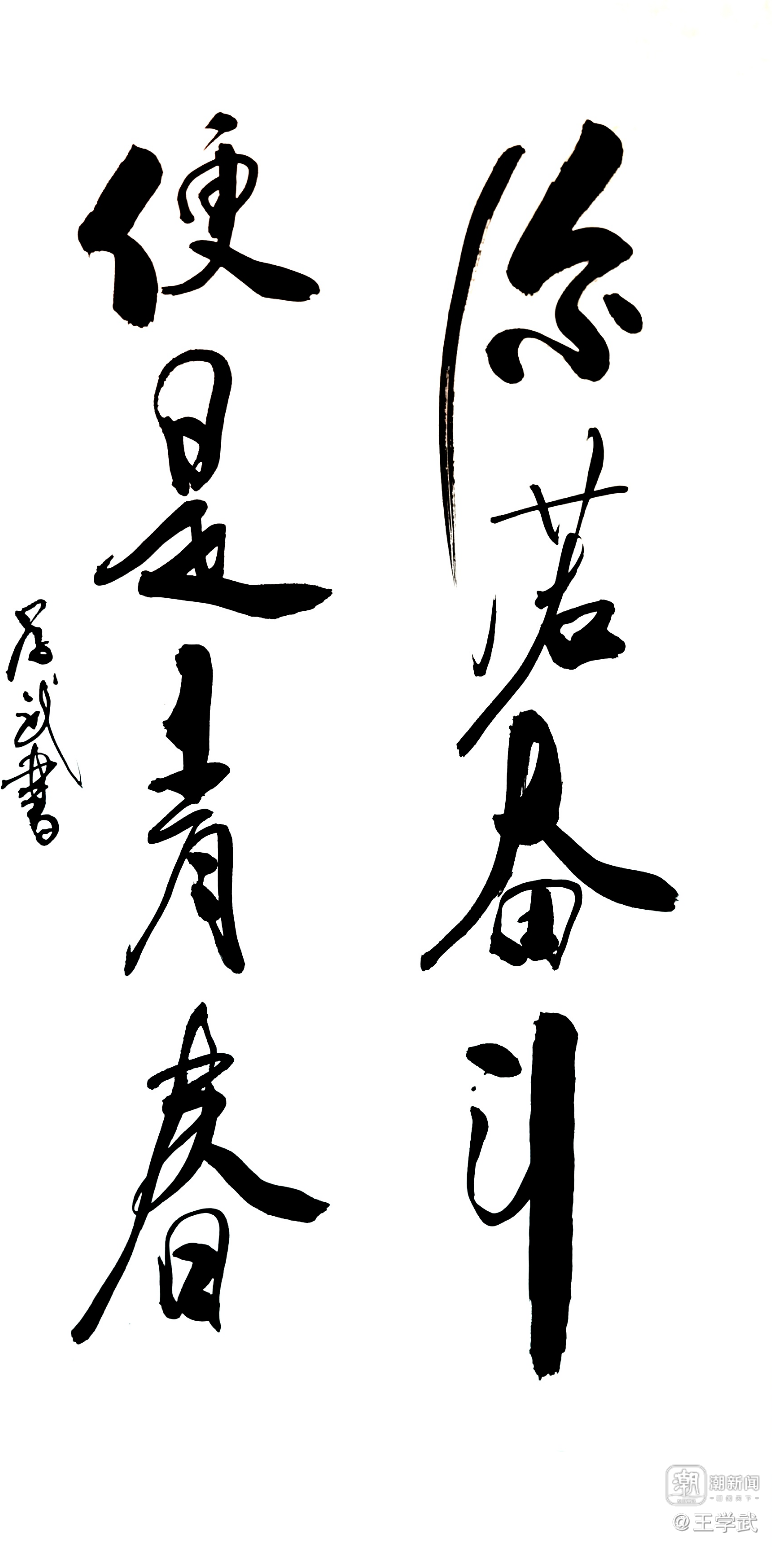 你若奋斗
便是青春
学武书
潮新闻
@王学武